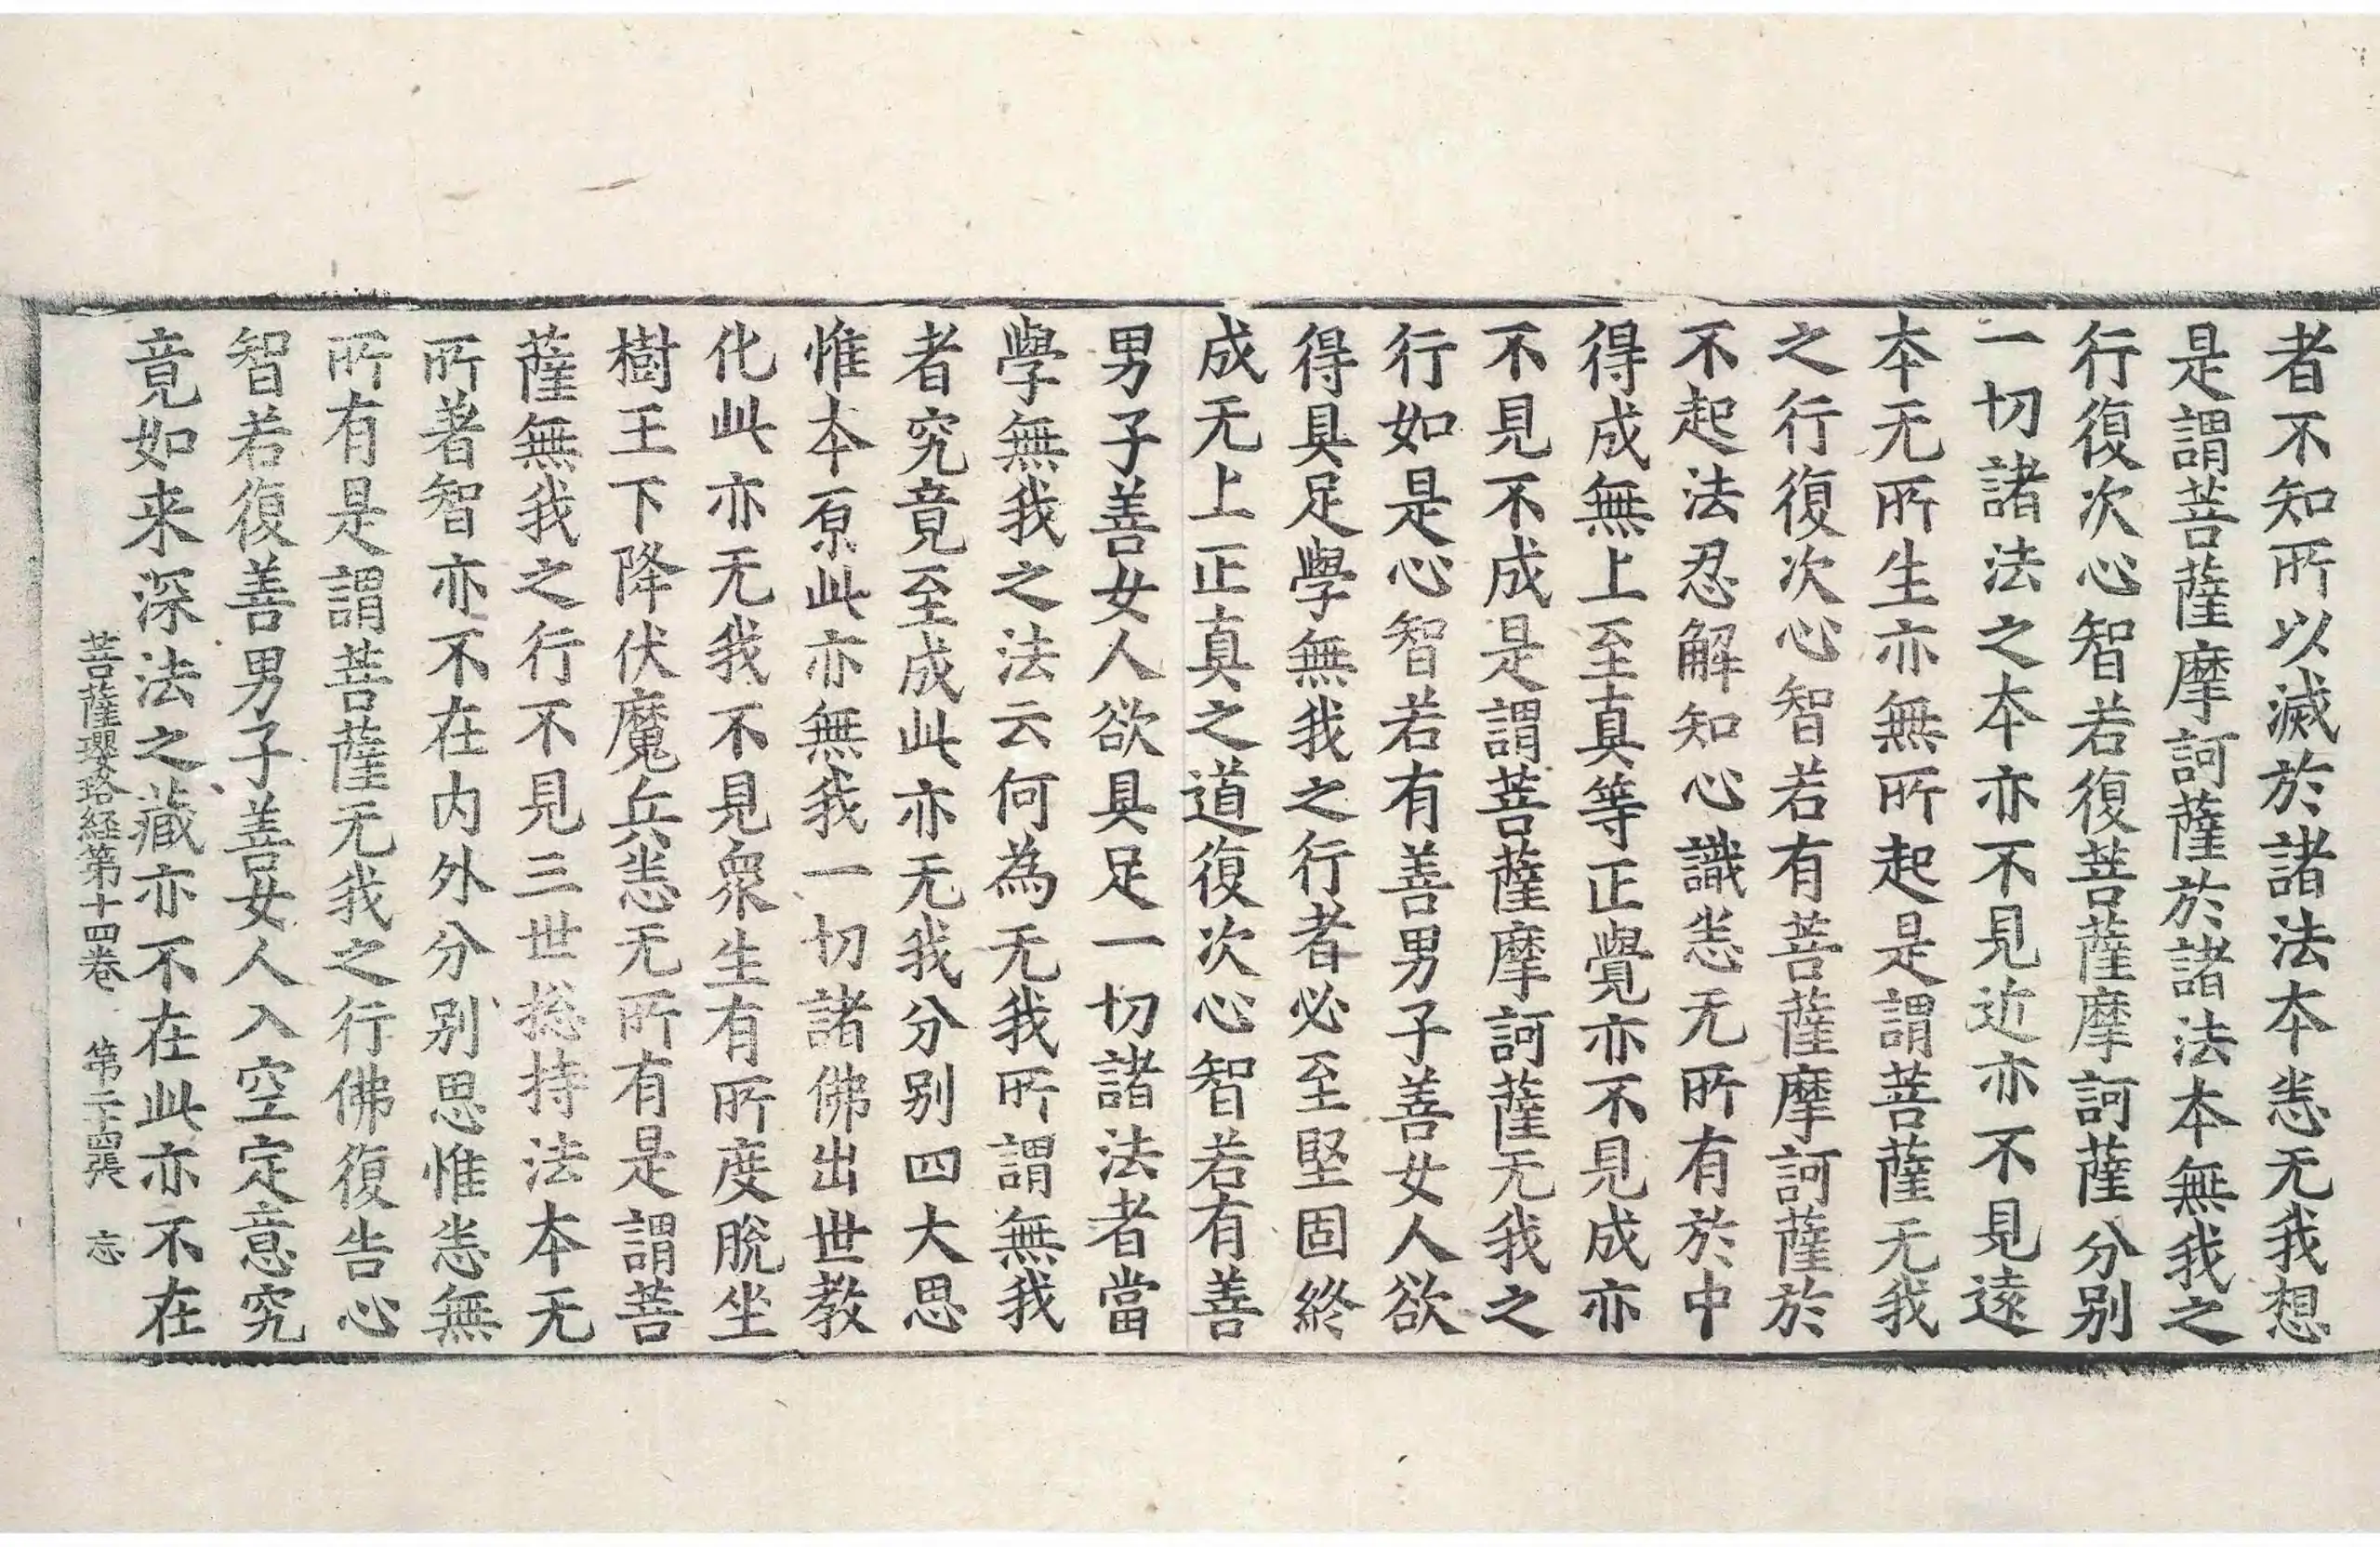 者不知所以滅於諸法本恙无我想
是謂菩薩摩訶薩於諸法本無我之
行復次心智若復菩薩摩訶薩分别
一切諸法之本亦不見近亦不見遠
本无所生亦無所起是謂菩薩无我
之行復次心智若有菩薩摩訶薩於
不起法忍解知心識恙无所有於中
得成無上至真等正覺亦不見成亦
不見不成是謂菩薩摩訶薩无我之
行如是心智若有善男子善女人欲
得具足學無我之行者必至堅固終
成无上正真之道復次心智若有善
男子善女人欲具足一切諸法者當
學無我之法云何為无我所謂無我
者究竟至成此亦无我分别四大思
惟本原此亦無我一切諸佛出世教
化此亦无我不見衆生有所度脫坐
樹王下降伏魔兵恙无所有是謂菩
薩無我之行不見三世捴持法本无
所著智亦不在内外分别思惟恙無
所有是謂菩薩无我之行佛復告心
智若復善男子善女人入空定意究
竟如来深法之藏亦不在此亦不在
菩薩瓔珞経第十四卷 第二十四張 忘